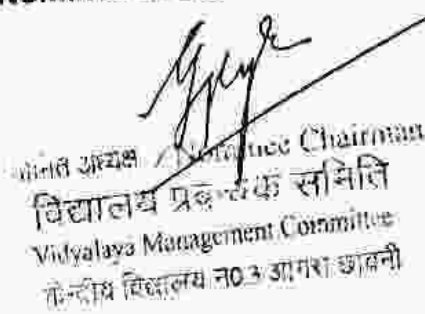 नामित अध्यक्ष / Nominee Chairman
विद्यालय प्रबन्धक समिति
Vidyalaya Management Committee
केन्द्रीय विद्यालय न0 3 आगरा छावनी